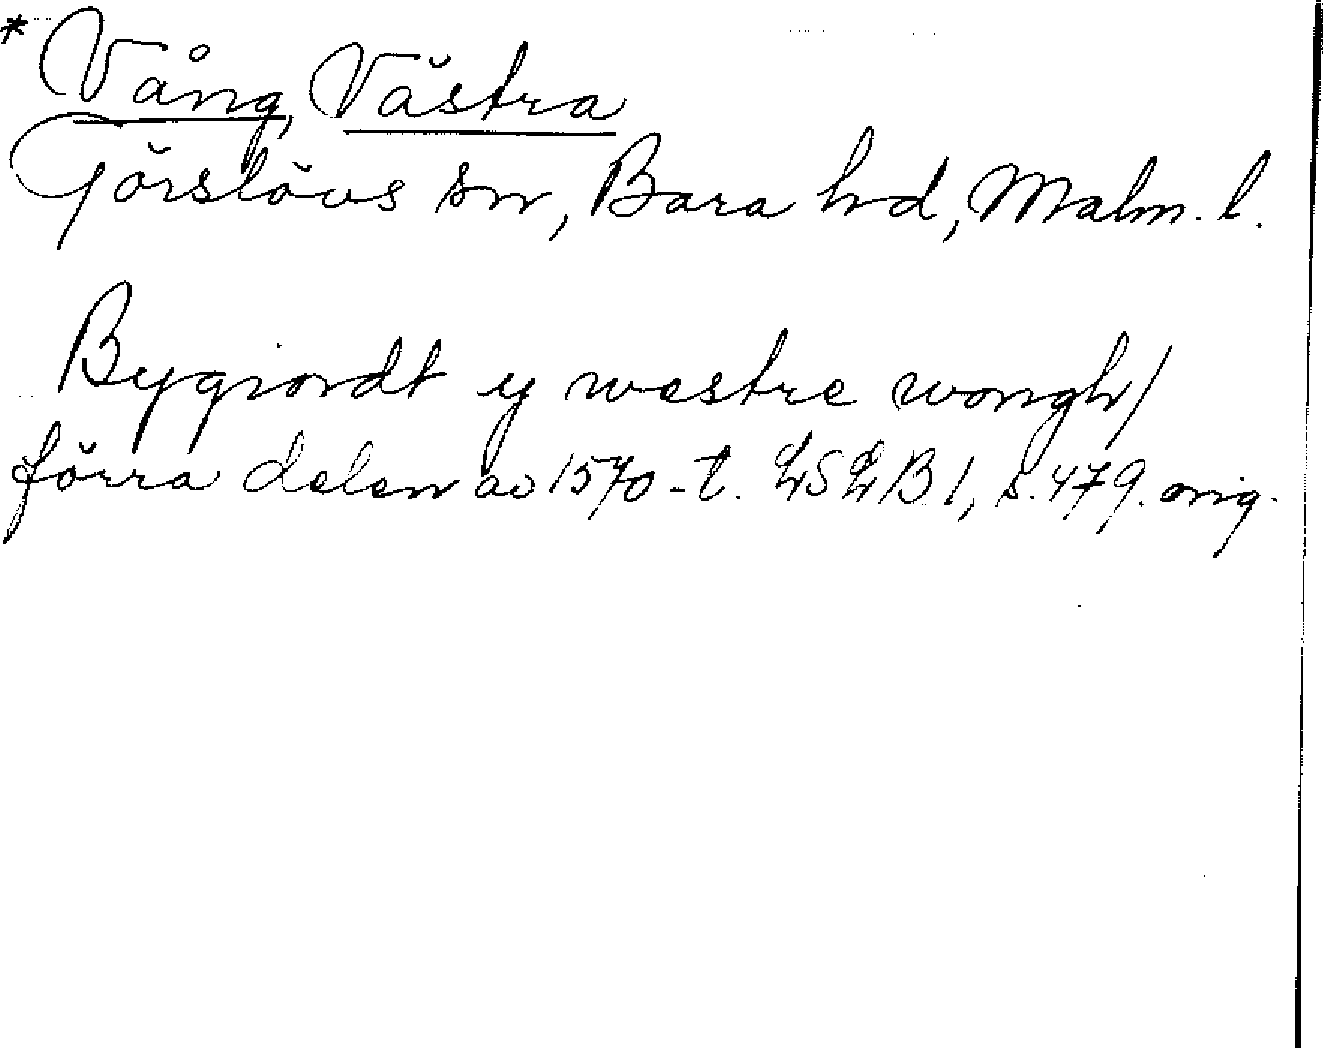 * Vång, Västra
Görslövs sn, Bara hd, Malm. l.
Bygiordt y westre wongh/
förra delen av 1570-t. LSLB 1, s. 479. orig.